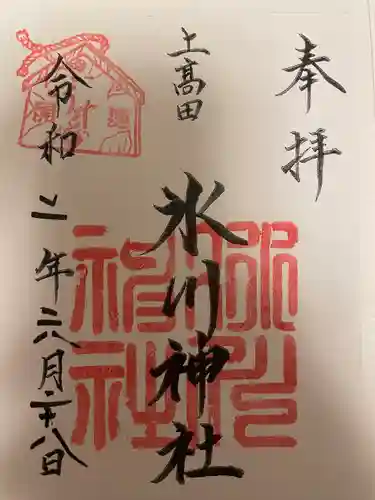 奉拝
上高田
氷川神社
令和二年六月二十八日
氷川神社